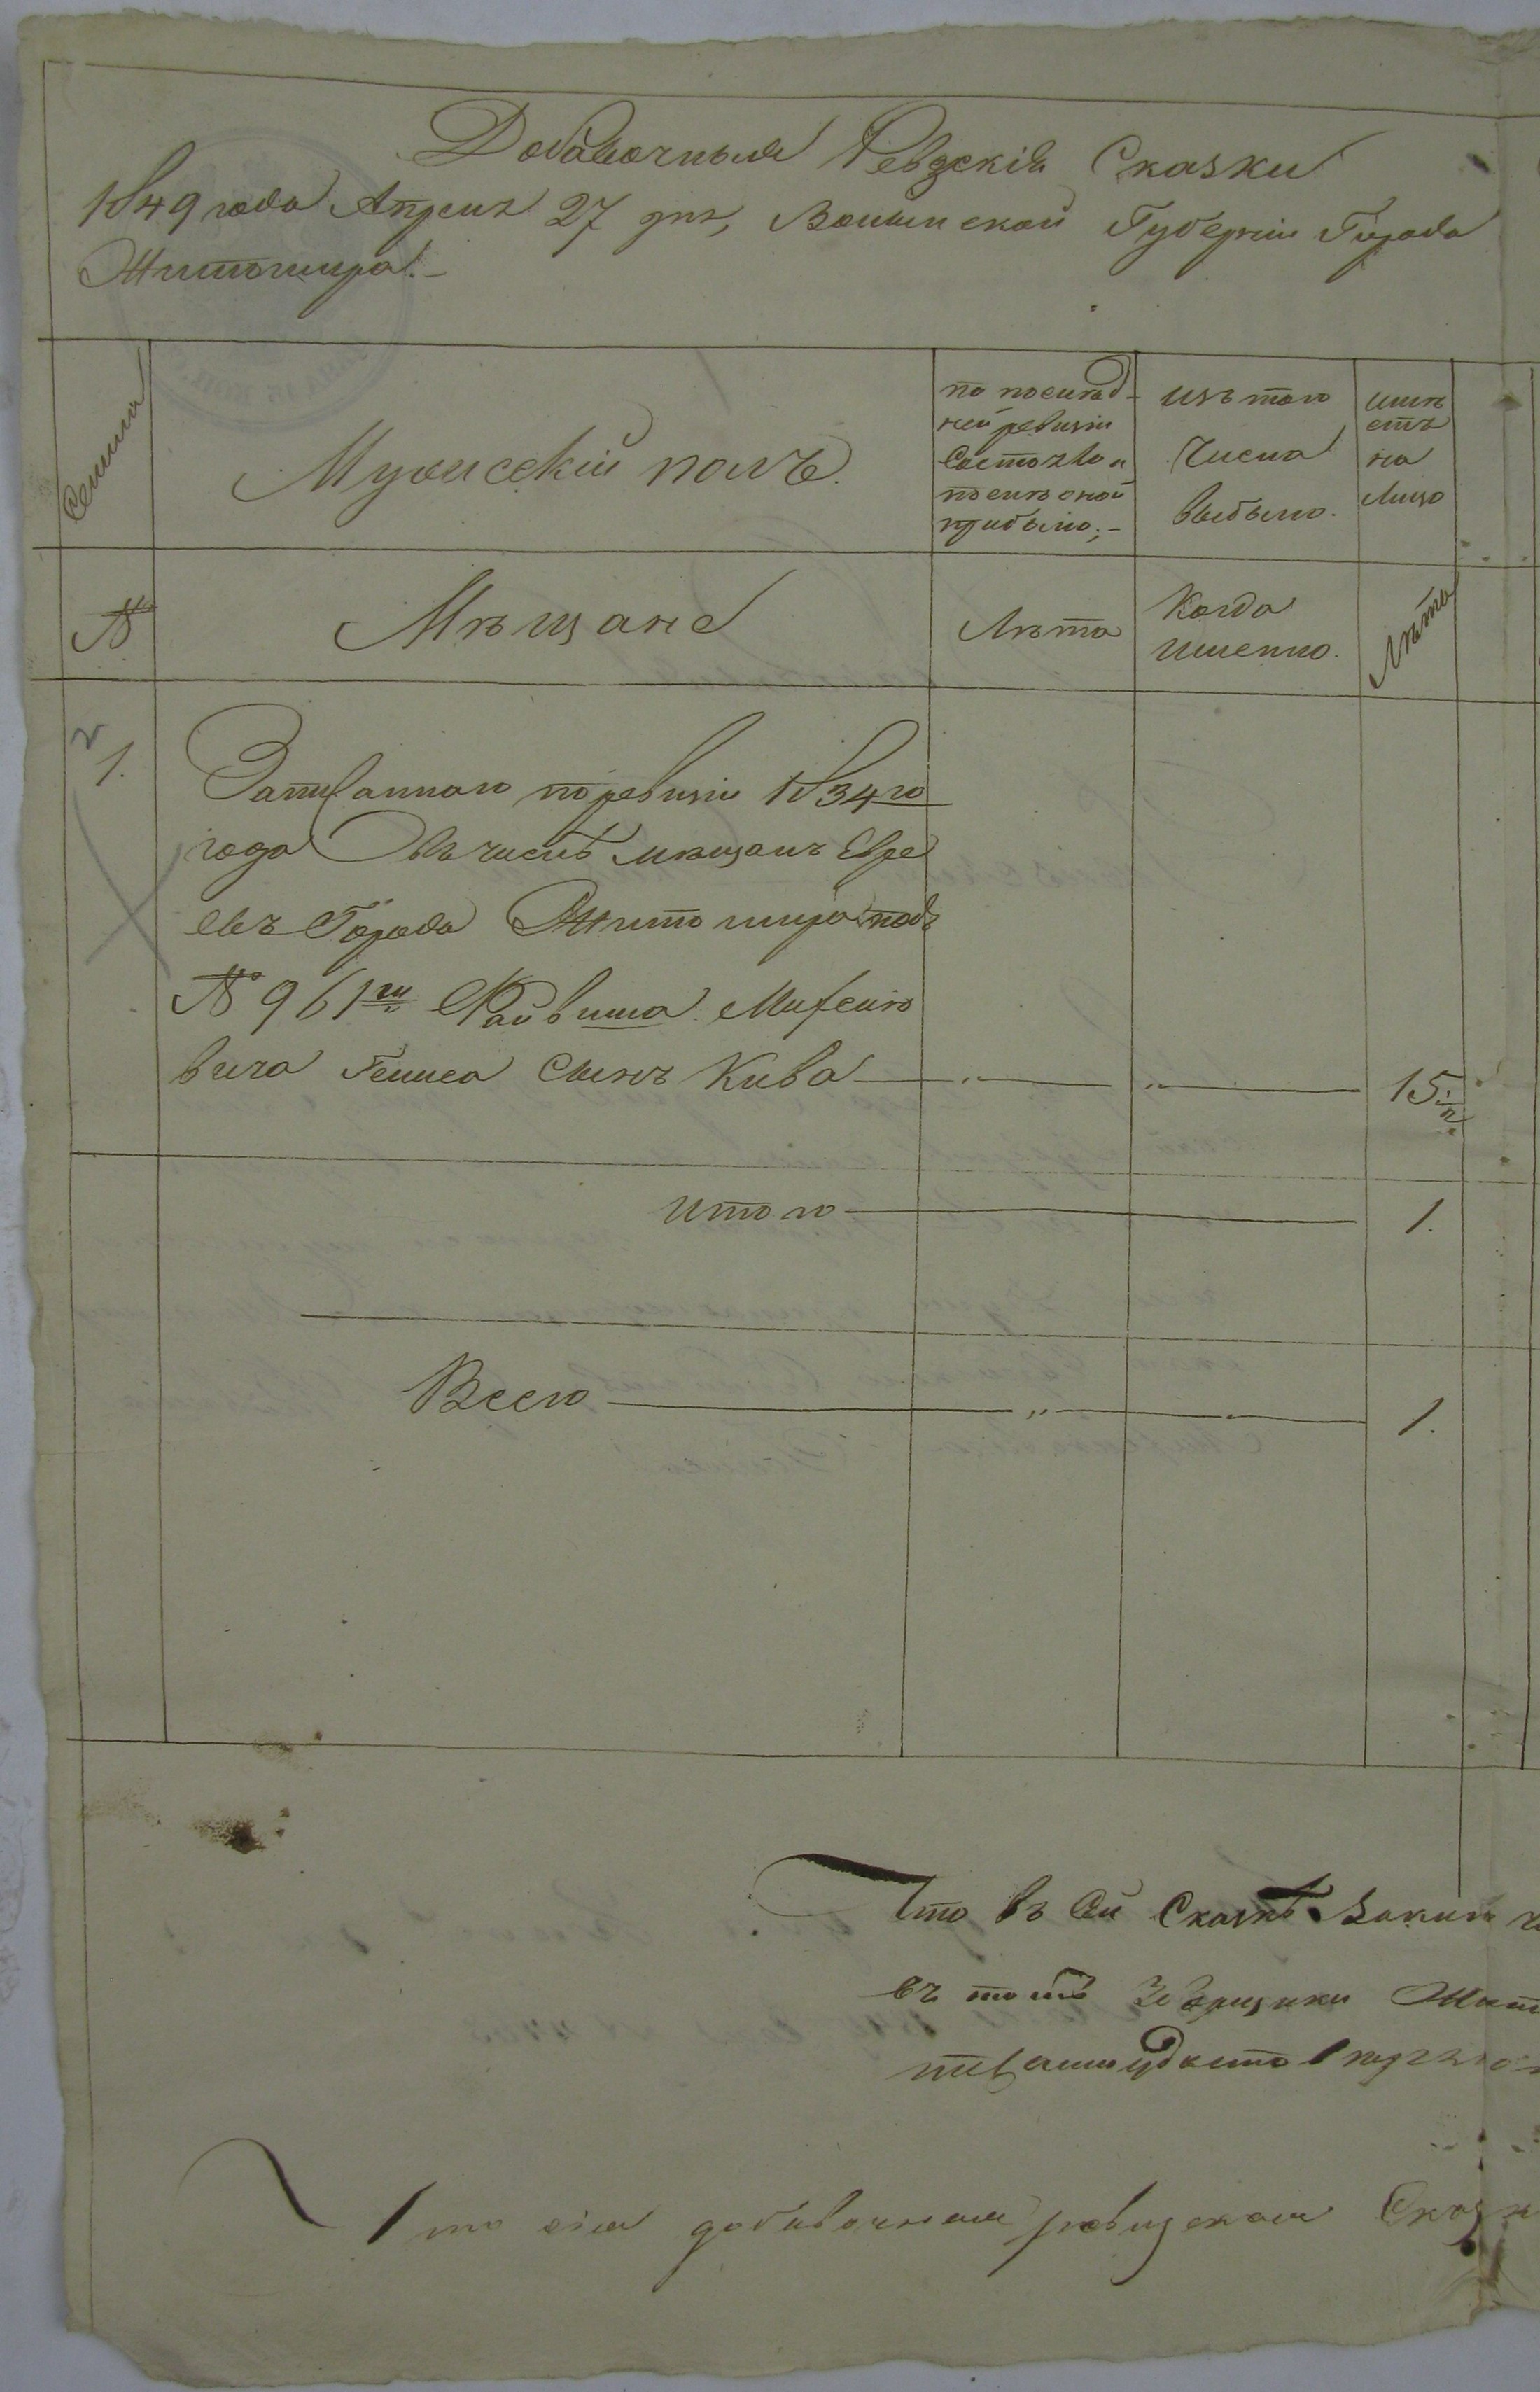 Добавочныя Ревзскія Сказки
1849 года Апреля 27 дня, Волынской Губерніи Города
Житомира.-
Семьи
Мужескій полъ.
по послѣд-
ней ревизіи
Состояло и
послѣ оной
прибыло;-
Изъ того
Числа
выбыло.
имѣ
етъ
на
Лицо
№
Мѣщане
Лѣта
Когда
Именно.
Лѣта
1.
Записанного по ревизіи 1834го
года въ числѣ мѣщанъ Евре
евъ Города Житомира подъ
№ 961мъ Файвиша
вича сынъ Кива — „ — „ — 15
Итого — 1.
Всего — „ — 1.
Что въ сей Сказкѣ
въ томъ
Что сія добавочная ревизская Сказк